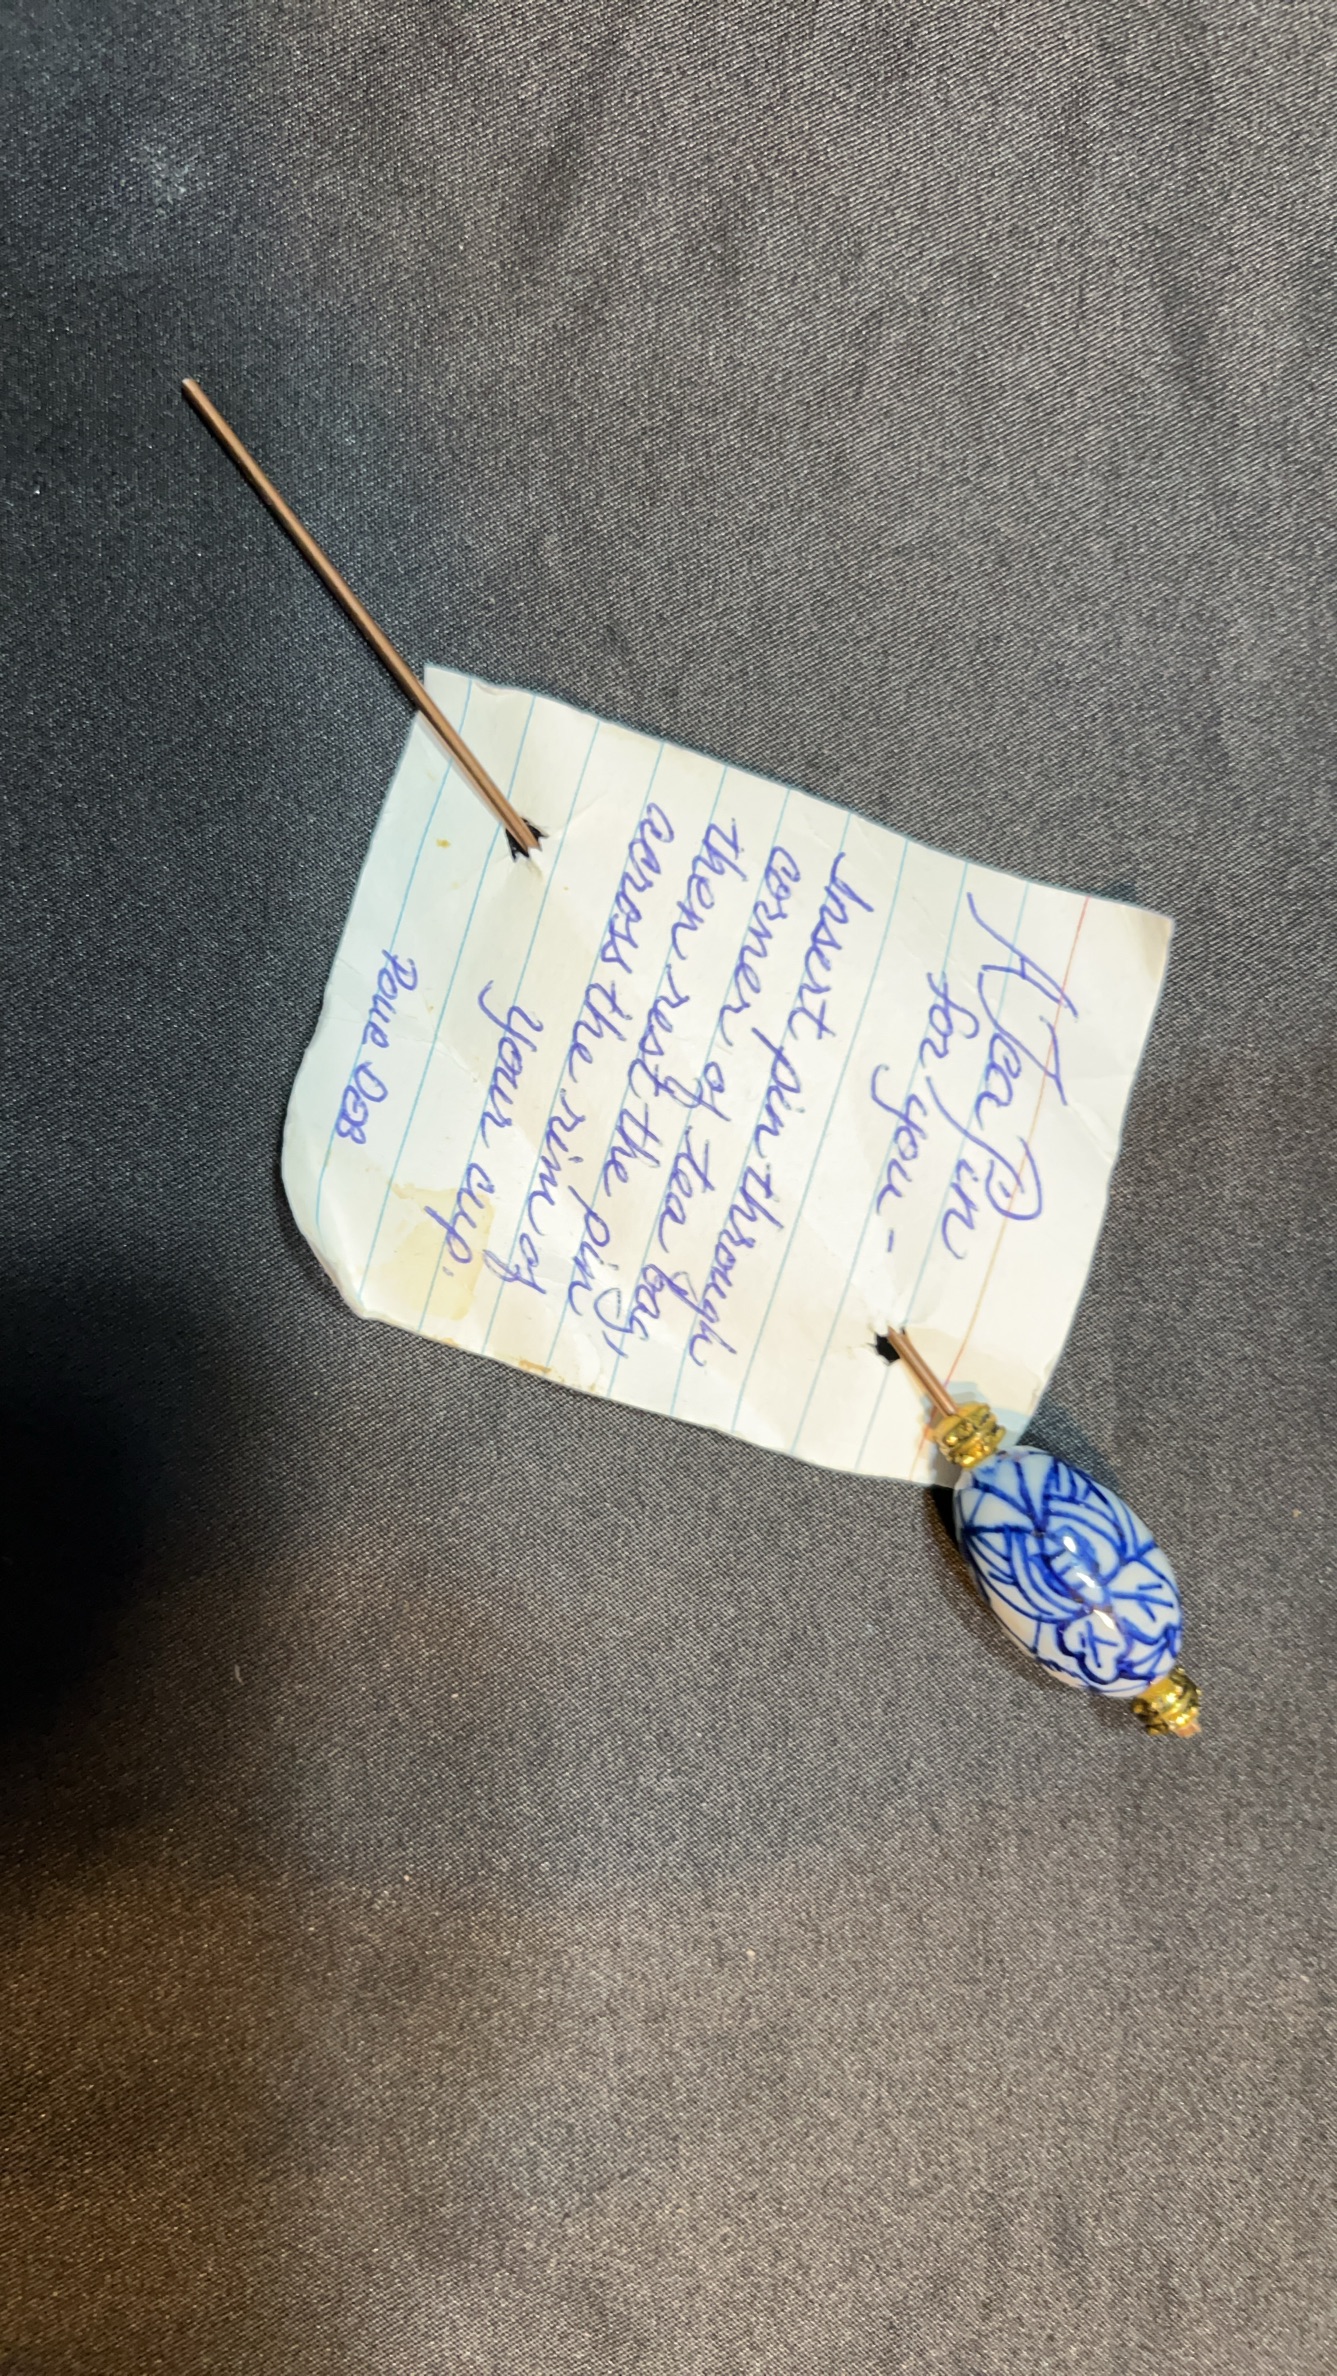 A Tea Pin
for you -
Insert pin through
corner of tea bag,
then rest the pin
across the rim of
your cup.
DOB